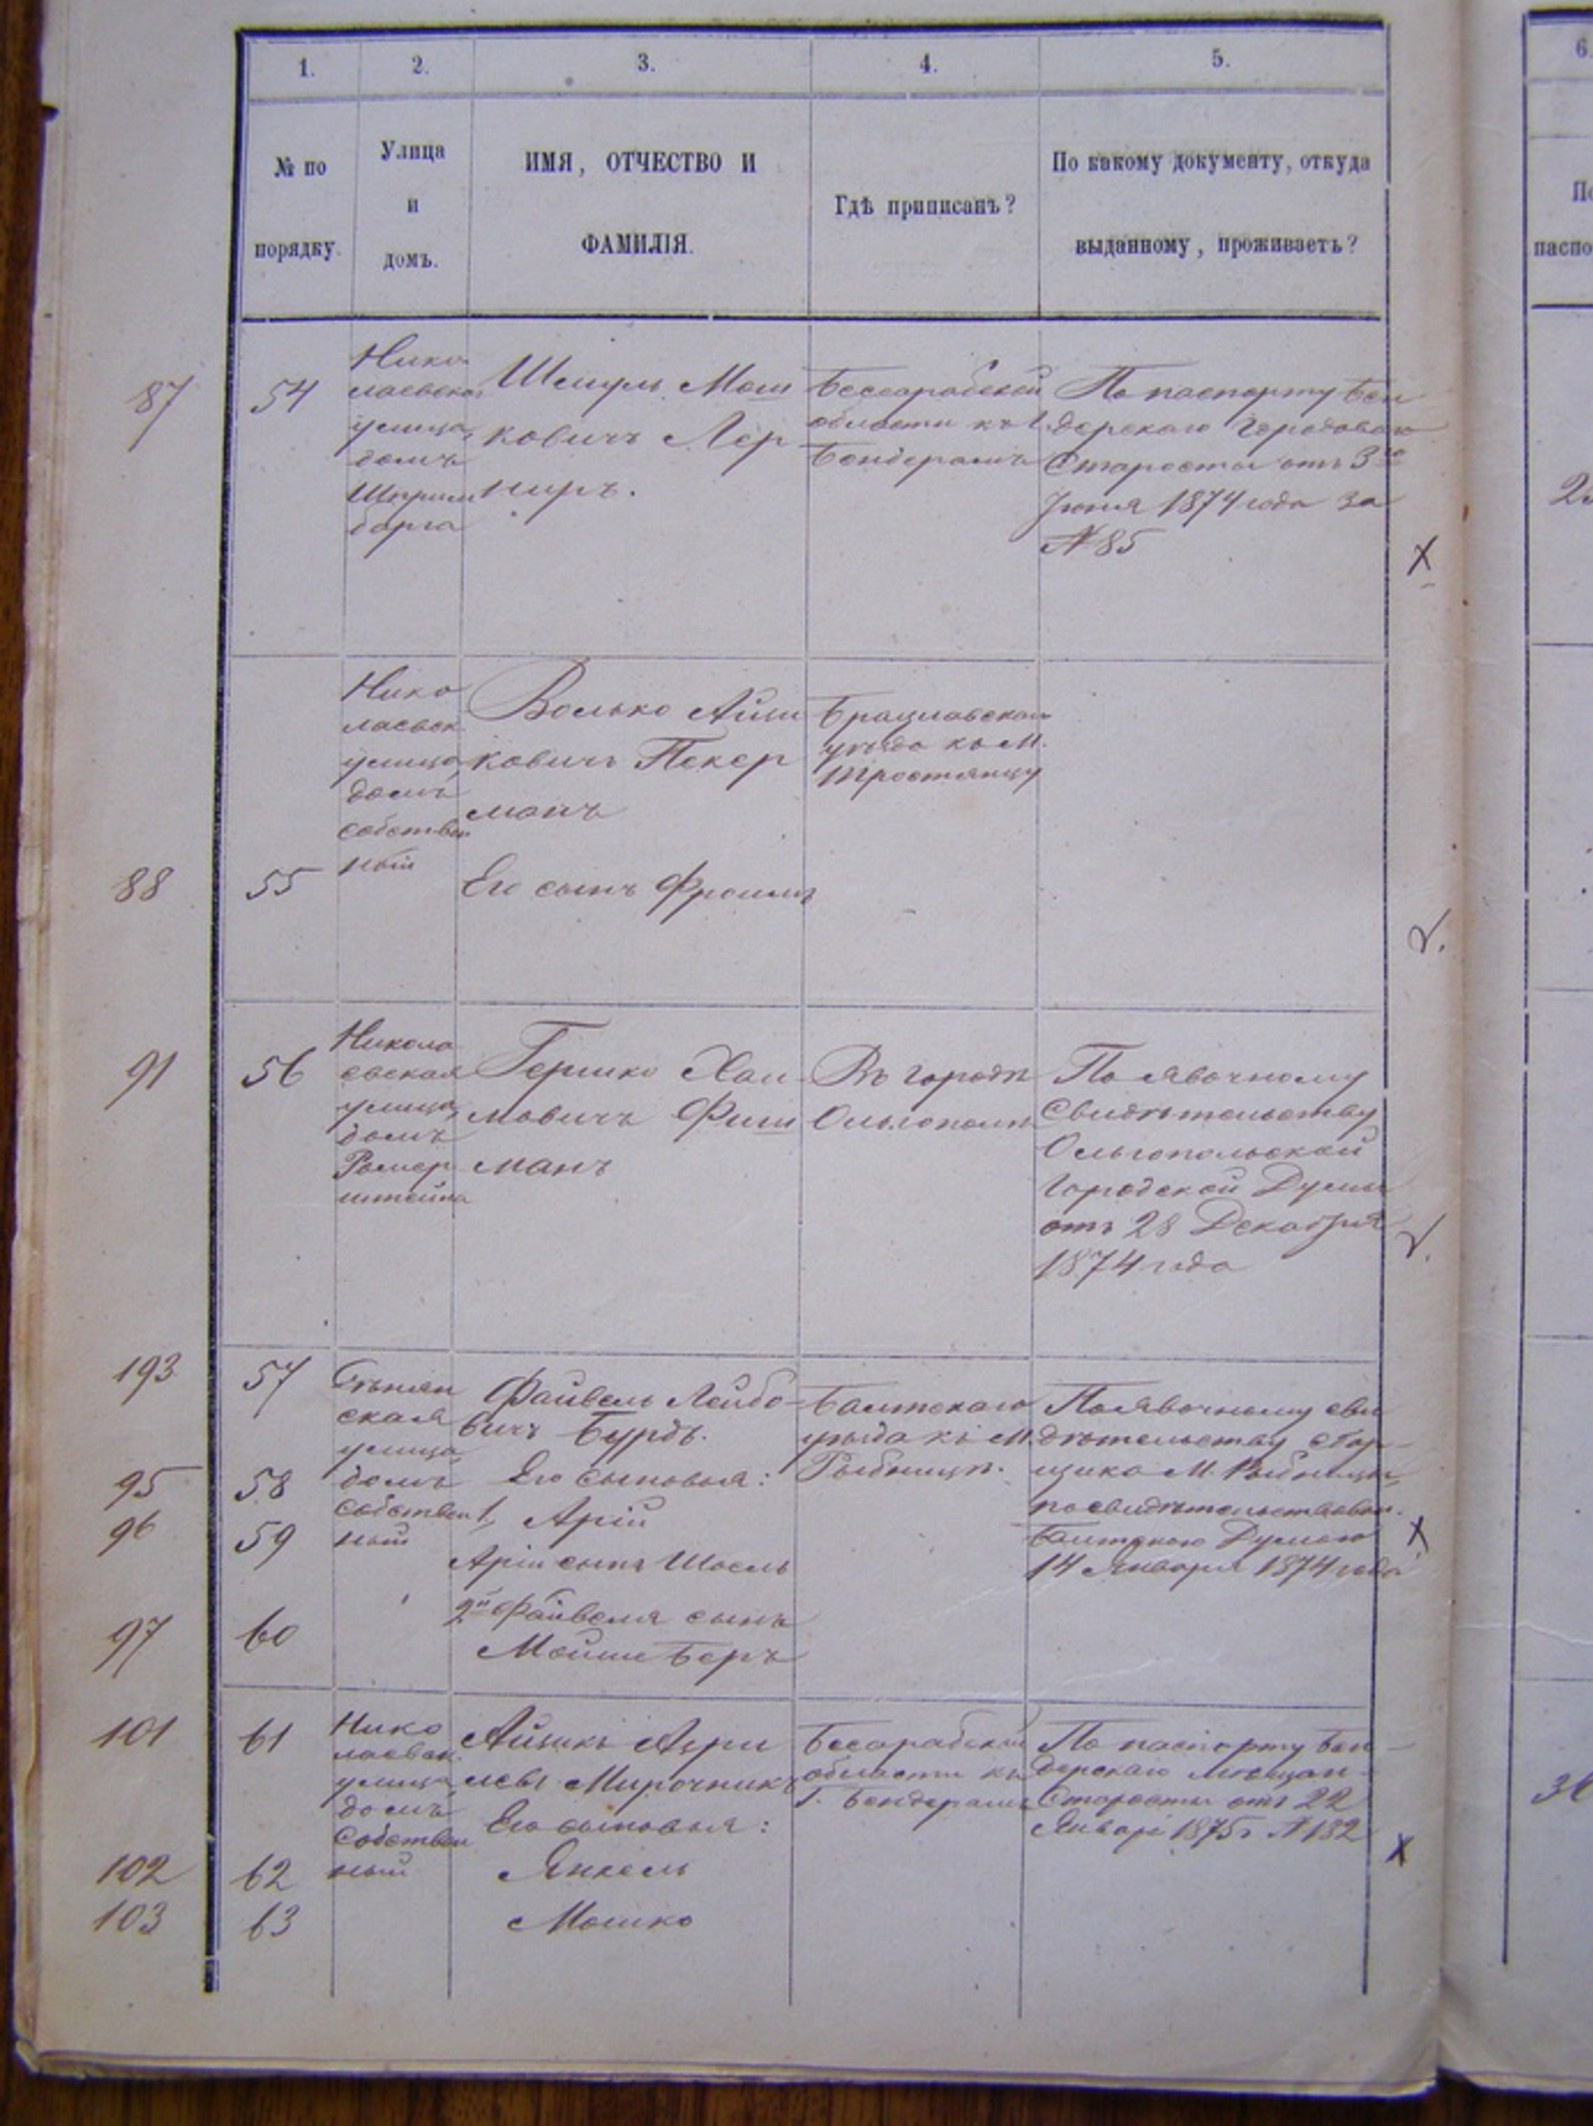 1. 2. 3. 4. 5. 6.
№ по порядку.
Улица и домъ.
ИМЯ, ОТЧЕСТВО И ФАМИЛІЯ.
Гдѣ приписанъ?
По какому документу, откуда выданному, проживаетъ?
87 54
Нико
лаевская
улица,
домъ
Шмулъ Мош
ковичъ Лер
неръ.
Бессарабской
области къ г.
Бендерамъ
По паспорту Бен
дерскаго Городоваго
Старосты отъ 3го
Іюня 1874 года за
№ 85
X
88 55
Нико
лаевск.
улица,
домъ
собствен
ный
Волько Айци
ковичъ Пекер
манъ
Его сынъ Фроимъ
Брацлавскаго
уѣзда къ М.
Тростянцу
91 56
Никола
евская
улица,
домъ
штейна
Гершко Хаи
мовичъ Фиш
манъ
Въ городѣ
Ольгополѣ
По явочному
свидѣтельству
Ольгопольской
Городской Думы
отъ 28 Декабря
1874 года
193 57
95 58
96 59
97 60
ская
улица,
домъ
собствен
ный
Файвель Лейбо-
вичъ Бурдъ.
Его сыновья:
1, Арій
Арія сынъ Шоель
2й Файвеля сынъ
Мойше Беръ
Балтскаго
уѣзда къ М.
Рыбницѣ.
По явочному сви
дѣтельству сбор-
щика М. Рыбницы,
по свидѣтельствован.
Балтскою Думою
14 Января 1874 года
X
101 61
102 62
103 63
Нико
лаевск.
улица
домъ
собствен
ный
Айзикъ Азри
левъ Мирочникъ
Его сыновья:
Янкель
Мошко
Бесарабской
области къ
г. Бендерамъ
По паспорту Бен-
дерскаго мѣщан-
Старосты отъ 22
Января 1875 г. № 182
X